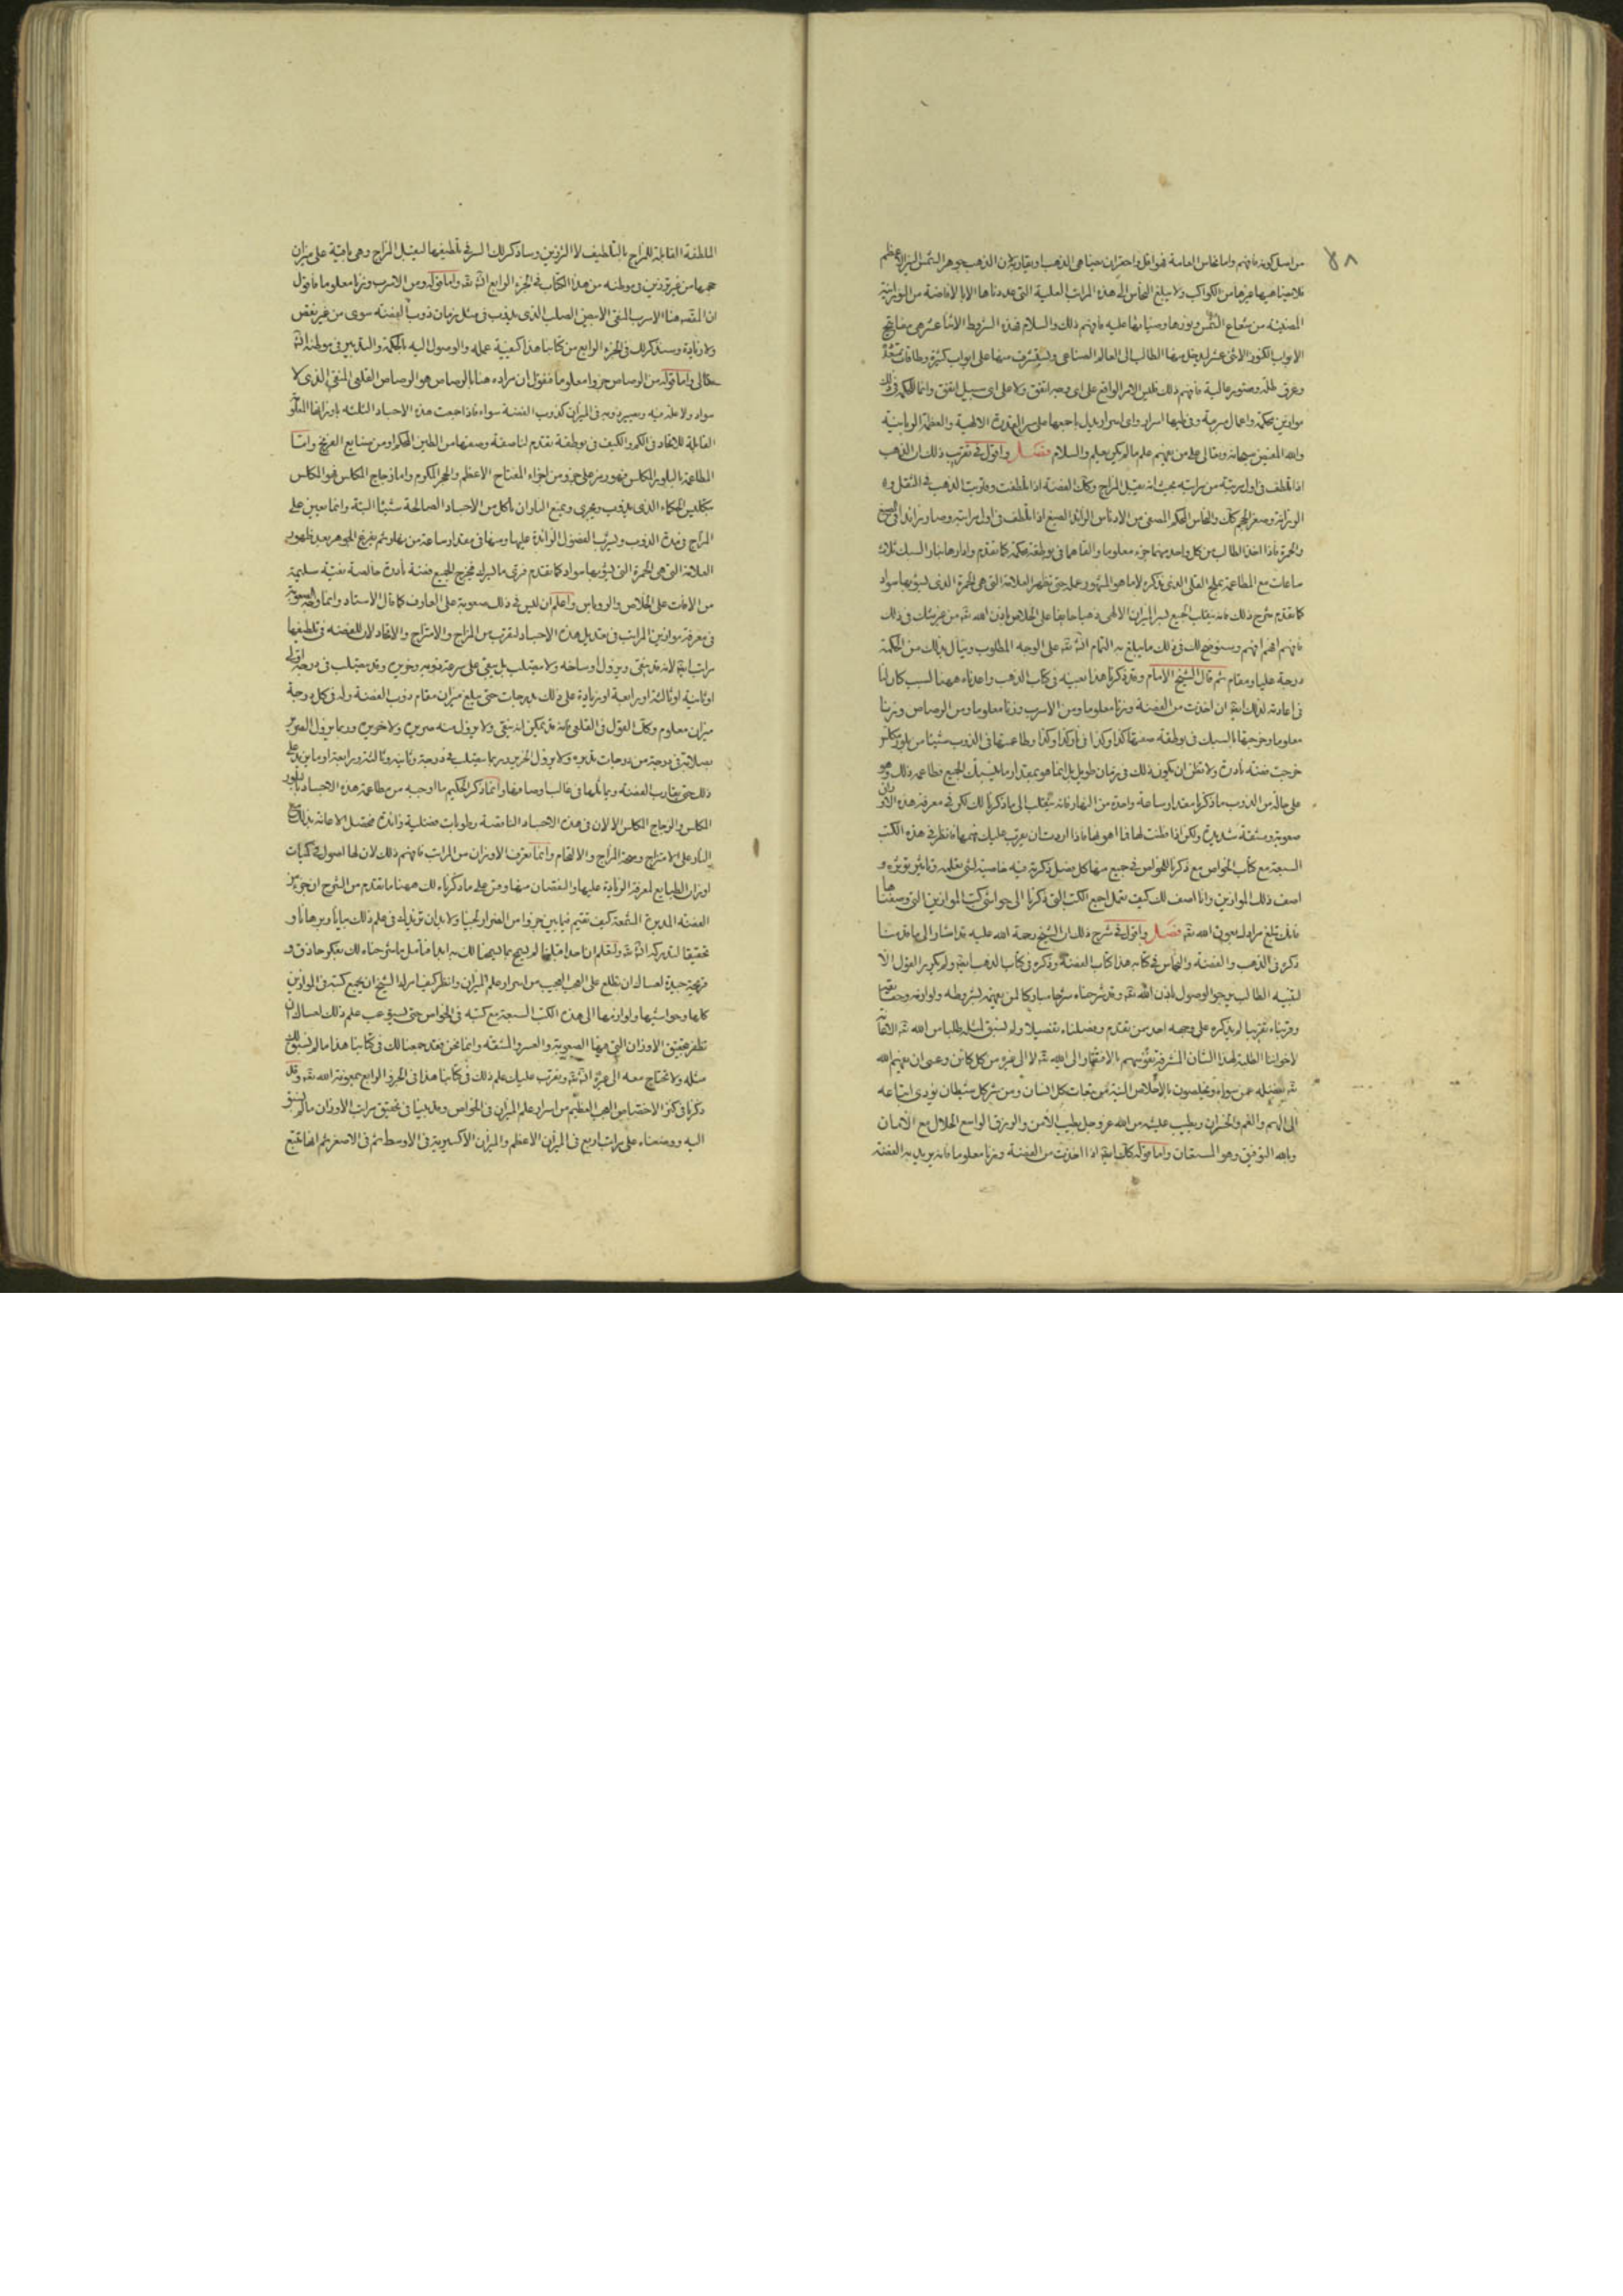 ٥٨
من اصل كونه فافهم واما نحاس العامة فهو اقل واحقر ان يضاهى الذهب او يقاربه لان الذهب جوهر الشمس النير الاعظم
فلا يضاهيها غيرها من الكواكب ولا يبلغ النحاس الى هذه المراتب العلية التى عددناها الا بالافاضة من النورانية
المضيئة من شعاع الشمس ونورها وضيائها عليه فافهم ذلك والسلام فهذه الشروط الاثنا عشر هى مفاتيح
الابواب الكنوز الاثنى عشر ليدخل منها الطالب الى العالم الصناعى وليشرف منها على ابواب كثيرة وطاقات
وغرف وقصور عالية فافهم ذلك فليس الامر الواقع على اى وجه اتفق ولا على اى سبيل اتفق وانما الحكمة فى ذلك
موازين محكمة واعمال مبرمة وفى طيها اسرار واى اسرار يدل باجمعها على سر القدرة الالهية والعظمة الربانية
والله المفيض سبحانه وتعالى على من يفهم علم ما لم يكن يعلم والسلام فصل واقول فى تقريب ذلك ان الذهب
اذا لطف فى اول مرتبة من مراتبه بحيث انه يقبل المزاج وكذلك الفضة اذا لطفت وقاربت الذهب فى الثقل و
الوزانة وصغر الحجم كذلك والنحاس المحكم المصفى من الادناس الزائد الصبغ اذا لطف فى اول مراتبه وصار زائدا فى الصبغ
والحمرة فاذا اخذ الطالب من كل واحد منهما جزء معلوما والقاهما فى بوطقة محكمة كما تقدم وادارها بنار السبك ثلاث
ساعات مع المطاعمة بملح القلى الذى ذكره لا ما هو المشهور عمله حتى تظهر العلامة التى هى الحمرة الذى يشوبها سواد
كما تقدم شرح ذلك فانه ينقلب الجميع لسر الميزان الالهى ذهبا خالصا على الخلاص باذن الله تعالى من غير شك فى ذلك
فافهم افهم افهم وسنوضح لك فى ذلك ما يبلغ به التمام ان شاء الله تعالى على الوجه المطلوب وينال بذلك من الحكمة
درجة عليا ومقام ثم قال الشيخ الامام وقد ذكرنا هذا بعينه فى كتاب الذهب واعدناه ههنا لسبب كان لنا
فى اعادته لذلك ايضا ان اخذت من الفضة وزنا معلوما ومن الاسرب وزنا معلوما ومن الرصاص وزنا
معلوما ومزجتها بالسبك فى بوطقة صفتها كذا وكذا وطاعمتها فى الذوب شيئا من
خرجت فضة نادرة ولا تظن ان يكون ذلك فى زمان طويل بل انما هو بمقدار ما ينسبك الجميع فطاعمه ذلك وهو
على حاله من الذوب ما ذكرنا مقدار ساعة واحدة من النهار فانه ينقلب الى ما ذكرنا لك لكن فى معرفة هذه الاوزان
صعوبة ومشقة شديدة ولكن اذا فطنت لها فما اهونها فاذا اردت ان يقرب عليك فهمها فانظر فى هذه الكتب
السبعة مع كتاب الخواص مع ذكرنا للخواص فى جميع منها كل فصل ذكرت فيه خاصية لشئ تعلمه وتاثير تؤثره و
اصف ذلك الموازين وانا اصف لك كيف تعمل اجمع الكتب التى ذكرنا الى حواشى كتب الموازين التى وصفناها
فانك تبلغ مرادك بعون الله تعالى فصل واقول فى شرح ذلك ان الشيخ رحمة الله عليه قد اشار الى ما قدمنا
ذكره فى الذهب والفضة والنحاس فى كتابه هذا كتاب الفضة وذكره فى كتاب الذهب ايضا ولم يكرر القول الا
لتنبيه الطالب يرجو الوصول باذن الله تعالى وقد شرحناه شرحا مباركا لمن يفهمه لشروطه ولوازمه
وقربناه تقريبا لم يذكره على وجهه احد ممن تقدم وفصلناه تفصيلا ولم نسبق لمثله طلبا من الله تعالى الاثابة
لاخواننا الطلبة لهذا الشان المشرفة نفوسهم بالافتقار الى الله تعالى لا الى غيره من كل كائن وعسى ان يغنيهم الله
تعالى بفضله عمن سواه ويخلصون بالاخلاص النية من تبعات كل انسان ومن شر كل شيطان يؤدى اتباعه
الى الهم والغم والخسران ويطيب عليه من الله عز وجل بطيب الامن والرزق الواسع الحلال مع الامان
وبالله التوفيق وهو المستعان واما قوله كذلك ايضا اذا اخذت من الفضة وزنا معلوما فانه يريد به الفضة
الملطفة القابلة للمزاج بالتلطيف لا الرزين وساذكر لك السر فى تلطيفها ليقبل المزاج وهى باقية على ميزان
حجمها من غير ترزين فى موطنه من هذا الكتاب فى الجزء الرابع ان شاء الله تعالى واما قوله ومن الاسرب وزنا معلوما فاقول
ان القصد هنا الاسرب المنقى الابيض الصلب الذى يذوب فى مثل زمان ذوب الفضة سوى من غير نقص
ولا زيادة وسنذكر لك فى الجزء الرابع من كتابنا هذا كيفية عمله والوصول اليه بالحكمة والتدبير فى موطنه ان شاء الله
تعالى واما قوله من الرصاص جزوا معلوما فنقول ان مراده هنا بالرصاص هو الرصاص القلعى المنقى الذى لا
سواد ولا علة فيه ويصير ذوبه فى الميزان كذوب الفضة سواء فاذا جمعت هذه الاجساد الثلثه باوزانها
القابلة للاتحاد فى الكم والكيف فى بوطقة تقدم لنا صفة وصفها من الطين المحكم او من صنايع الفرنج واما
المطاعمة بالبلور المكلس فهو رمز على جزو من اجزاء المفتاح الاعظم والحجر المكرم واما زجاج المكلس فهو المكلس
بتكليس الحكماء الذى يذوب ويجرى ويمنع النار ان تاكل من الاجساد الصالحة شيئا البتة وانما يعين على
المزاج فى مدة الذوب ويرسب الفضول الزائدة عليها وسخا فى مقدار ساعة من نهار ثم يفرغ الجوهر بعد ظهور
العلامة التى هى الحمرة التى يشوبها سواد كما تقدم فرق ما ليبرد فيخرج الجميع فضة نادرة خالصة نقية سليمة
من الافات على الخلاص والروباس واعلم ان ليس فى ذلك صعوبة على العارف كما قال الاستاد وانما وجه الصعوبة
فى معرفة موازين المراتب فى تعديل هذه الاجساد لتقرب من المزاج والامتزاج والاتحاد لان للفضة فى تلطيفها
مراتب ايضا لانه قد ينقى ويزول اوساخه ولا يصلب بل يبقى على سرعة ذوبه وخرير وقد يصلب فى درجة اولى
او ثانية او ثالثة او رابعة او زيادة على ذلك بدرجات حتى يبلغ ميزان مقام ذوب الفضة وله فى كل درجة
ميزان معلوم وكذلك القول فى القلعى فانه قد يمكن انه ينقى ولا يزول منه صريره ولا خريره وربما يزول الصرير
بصلابته فى درجة من درجات تدبيره ولا يزول الخرير وربما يصلب فى درجة وثانية وثالثة ورابعة او ما يزيد على
ذلك حتى يقارب الفضة ويماثلها فى غالب اوصافها وانما ذكر الحكيم ما اوجبه من مطاعمة هذه الاجساد بالبلور
المكلس والزجاج المكلس الا لان فى هذه الاجساد الناقصة رطوبات فضلية زائدة فيحصل الاعانة بذلك مع
النار على الامتزاج وصحة المزاج والالتحام وانما تعرف الاوزان من المراتب فافهم ذلك لان لها اصول فى كميات
اوزان الطبايع لمعرفة الزيادة عليها والنقصان منها وقس على ما ذكرناه لك ههنا ما تقدم من الشرح
الفضة المدبرة الشمعة كيف تقيم فيما بين جزوا من القمر او لجينا ولا بد ان تزيدك فى علم ذلك بيانا وبرهانا و
تحقيقا لتدركه ان شاء الله تعالى ولتعلم ان احدا قبلنا لم يسمح بما سمحنا لك به ابدا فتامل ما شرحناه لك بفكر حاذق و
قريحة جيدة لعساك ان تطلع على العجب العجيب من اسرار علم الميزان وانظر كيف امرك الشيخ ان تجمع كتبه فى الموازين
كلها وحواشيها ولوازمها الى هذه الكتب السبعة مع كتبه فى الخواص حتى تستوعب علم ذلك لعساك ان
تظفر بتحقيق الاوزان التى فيها الصعوبة والعسر والمشقة وانما نحن فقد جمعنا لك فى كتابنا هذا ما لم نسبق الى
مثله ولا تحتاج معه الى غيره ان شاء الله تعالى ونقرب عليك علم ذلك فى كتابنا هذا فى الجزو الرابع بمعونة الله تعالى وقد
ذكرنا فى كنز الاختصاص العجب العظيم من اسرار علم الميزان فى الخواص وقد بينا فى تحقيق مراتب الاوزان ما لم نسبق
اليه ووضعناه على مراتب اربع فى الميزان الاعظم والميزان الاكسيرية فى الاوسط ثم فى الاصغر ثم